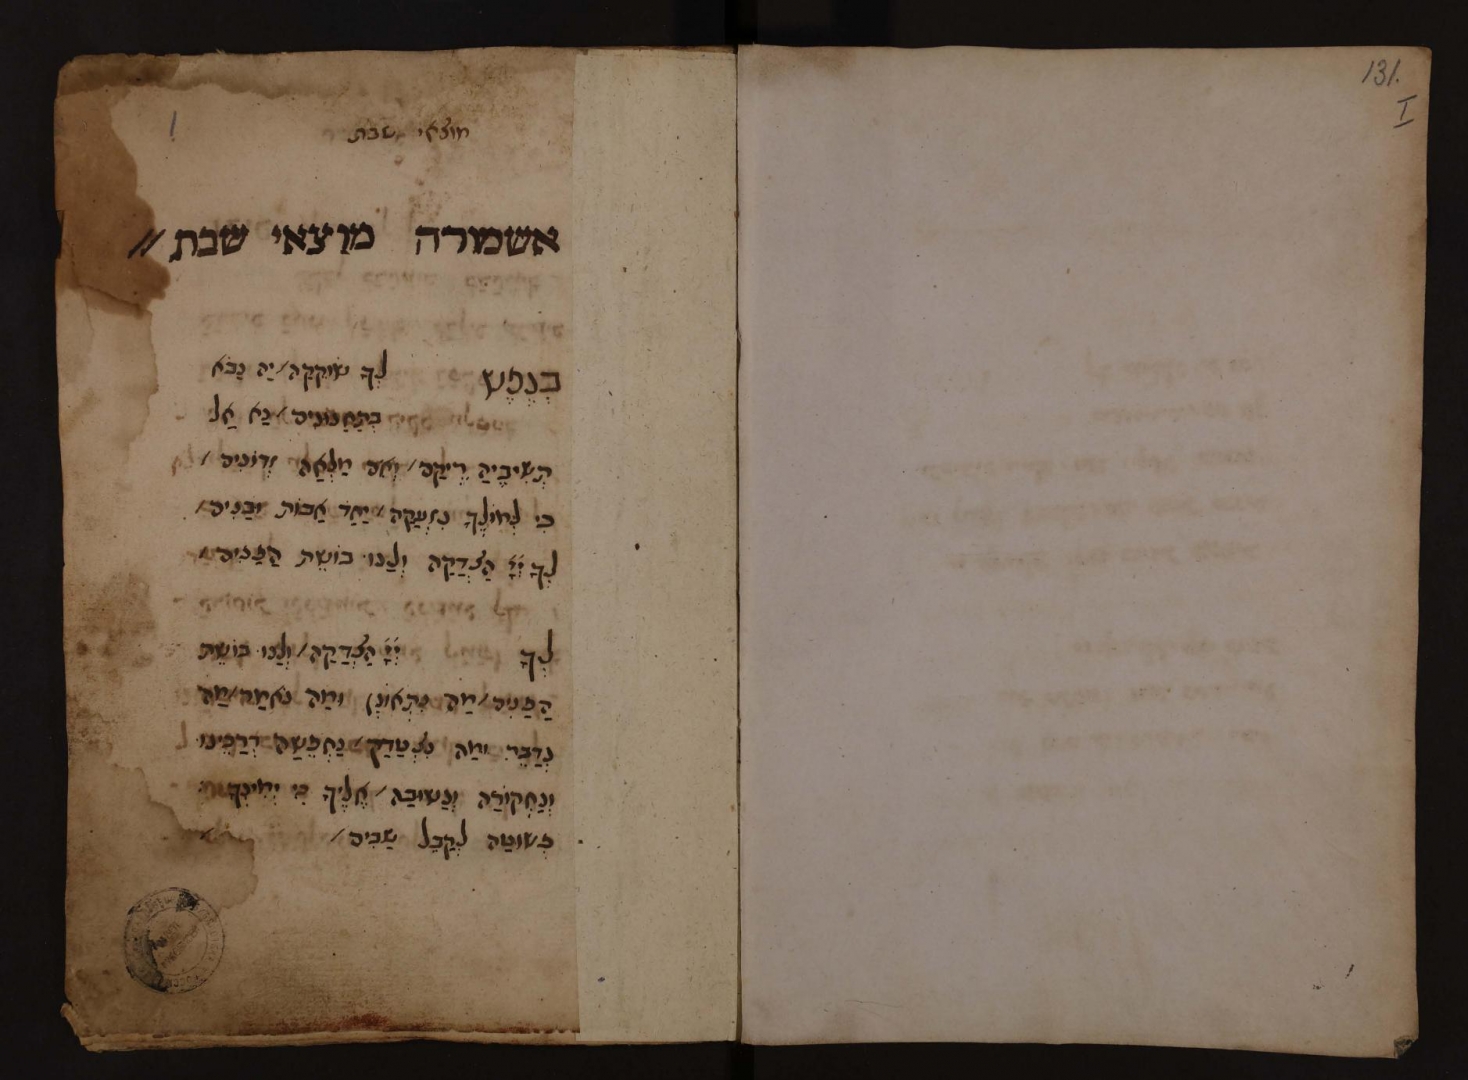 131.
I
1
מוצאי שבת
אשמורה מוצאי שבת //
בְנֶפֶש לְךָ שׁוֹקֵקָה / יָהּ נָבֹא
בְתַחֲנוּנִים / נָא אַל
תְשִיבֶיהָ רֵיקָם / וְאִם מָלְאָה זְדוֹנִים /
כִי לְמוּלְךָ נִזְעָקָה / יַחַד אָבוֹת וּבָנִים /
לְךָ יְיָ הַצְדָקָה וְלָנוּ בוֹשֶת הַפָנִים /
לְךָ יְיָ הַצְדָקָה / וְלָנוּ בוֹשֶת
הַפָנִים / מַה נִתְאוֹנֵן וּמַה נֹאמַר / מַה
נְדַבֵר וּמַה נִצְטַדָק / נַחְפְשָה דְרָכֵינוּ
וְנַחְקוֹרָה וְנָשוּבָה / אֵלֶיךָ כִי יְמִינְךָ
פְשוּטָה לְקַבֵל שָבִים /